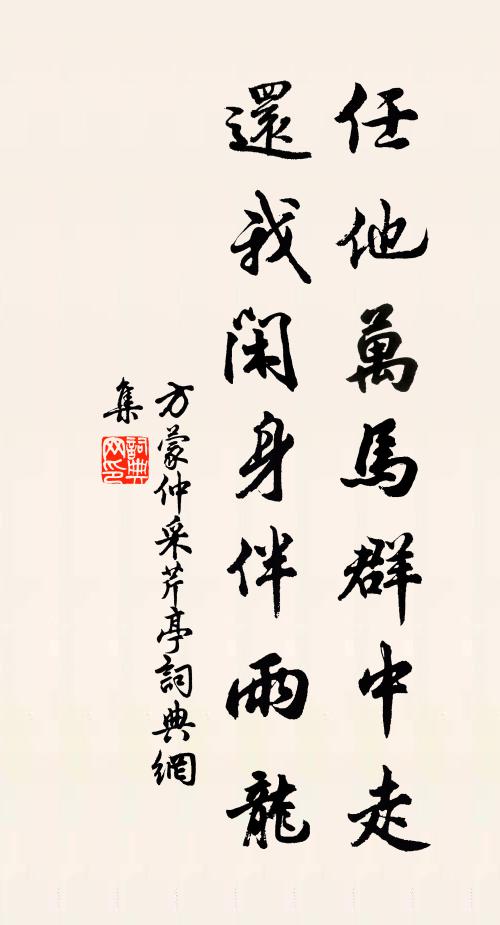 任他萬馬群中走
還我閑身伴雨龍
方蒙仲采芹亭詞典網
集
詞典網印